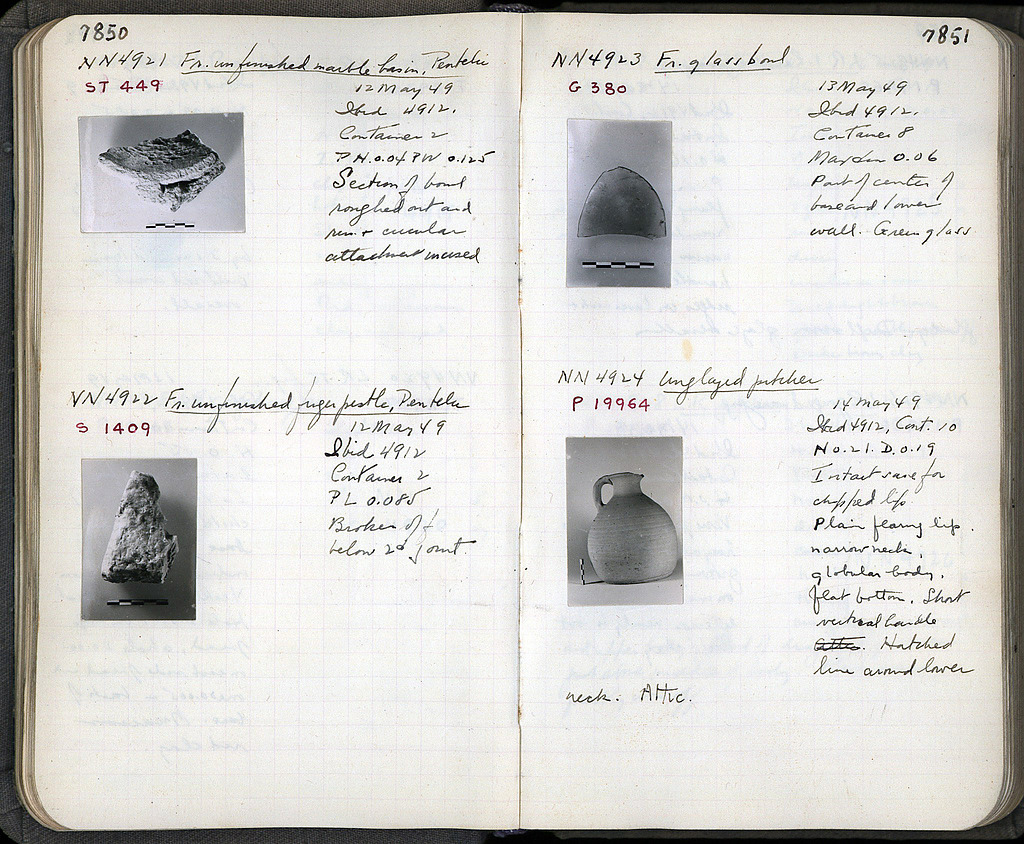 7850
NN4921 Fr. unfinished marble basin, Pentelic
ST 449
12 May 49
Ibid 4912.
Container 2
P.H. 0.04 P.W. 0.125
Section of bowl
roughed out and
rim + circular
attachment incised
NN4922 Fr. unfinished finger pestle, Pentelic
S 1409
12 May 49
Ibid 4912
Container 2
P L 0.085
Broken off
below 2d joint.
7851
NN4923 Fr. glass bowl
G 380
13 May 49
Ibid 4912.
Container 8
Max dim 0.06
Part of center of
base and lower
wall. Green glass
NN4924 Unglazed pitcher
P 19964
14 May 49
Ibid 4912, Cont. 10
H 0.21. D. 0.19
Intact save for
chipped lip
Plain flaring lip.
narrow neck,
globular body,
flat bottom. Short
vertical handle
Attic. Notched
line around lower
neck. Attic.